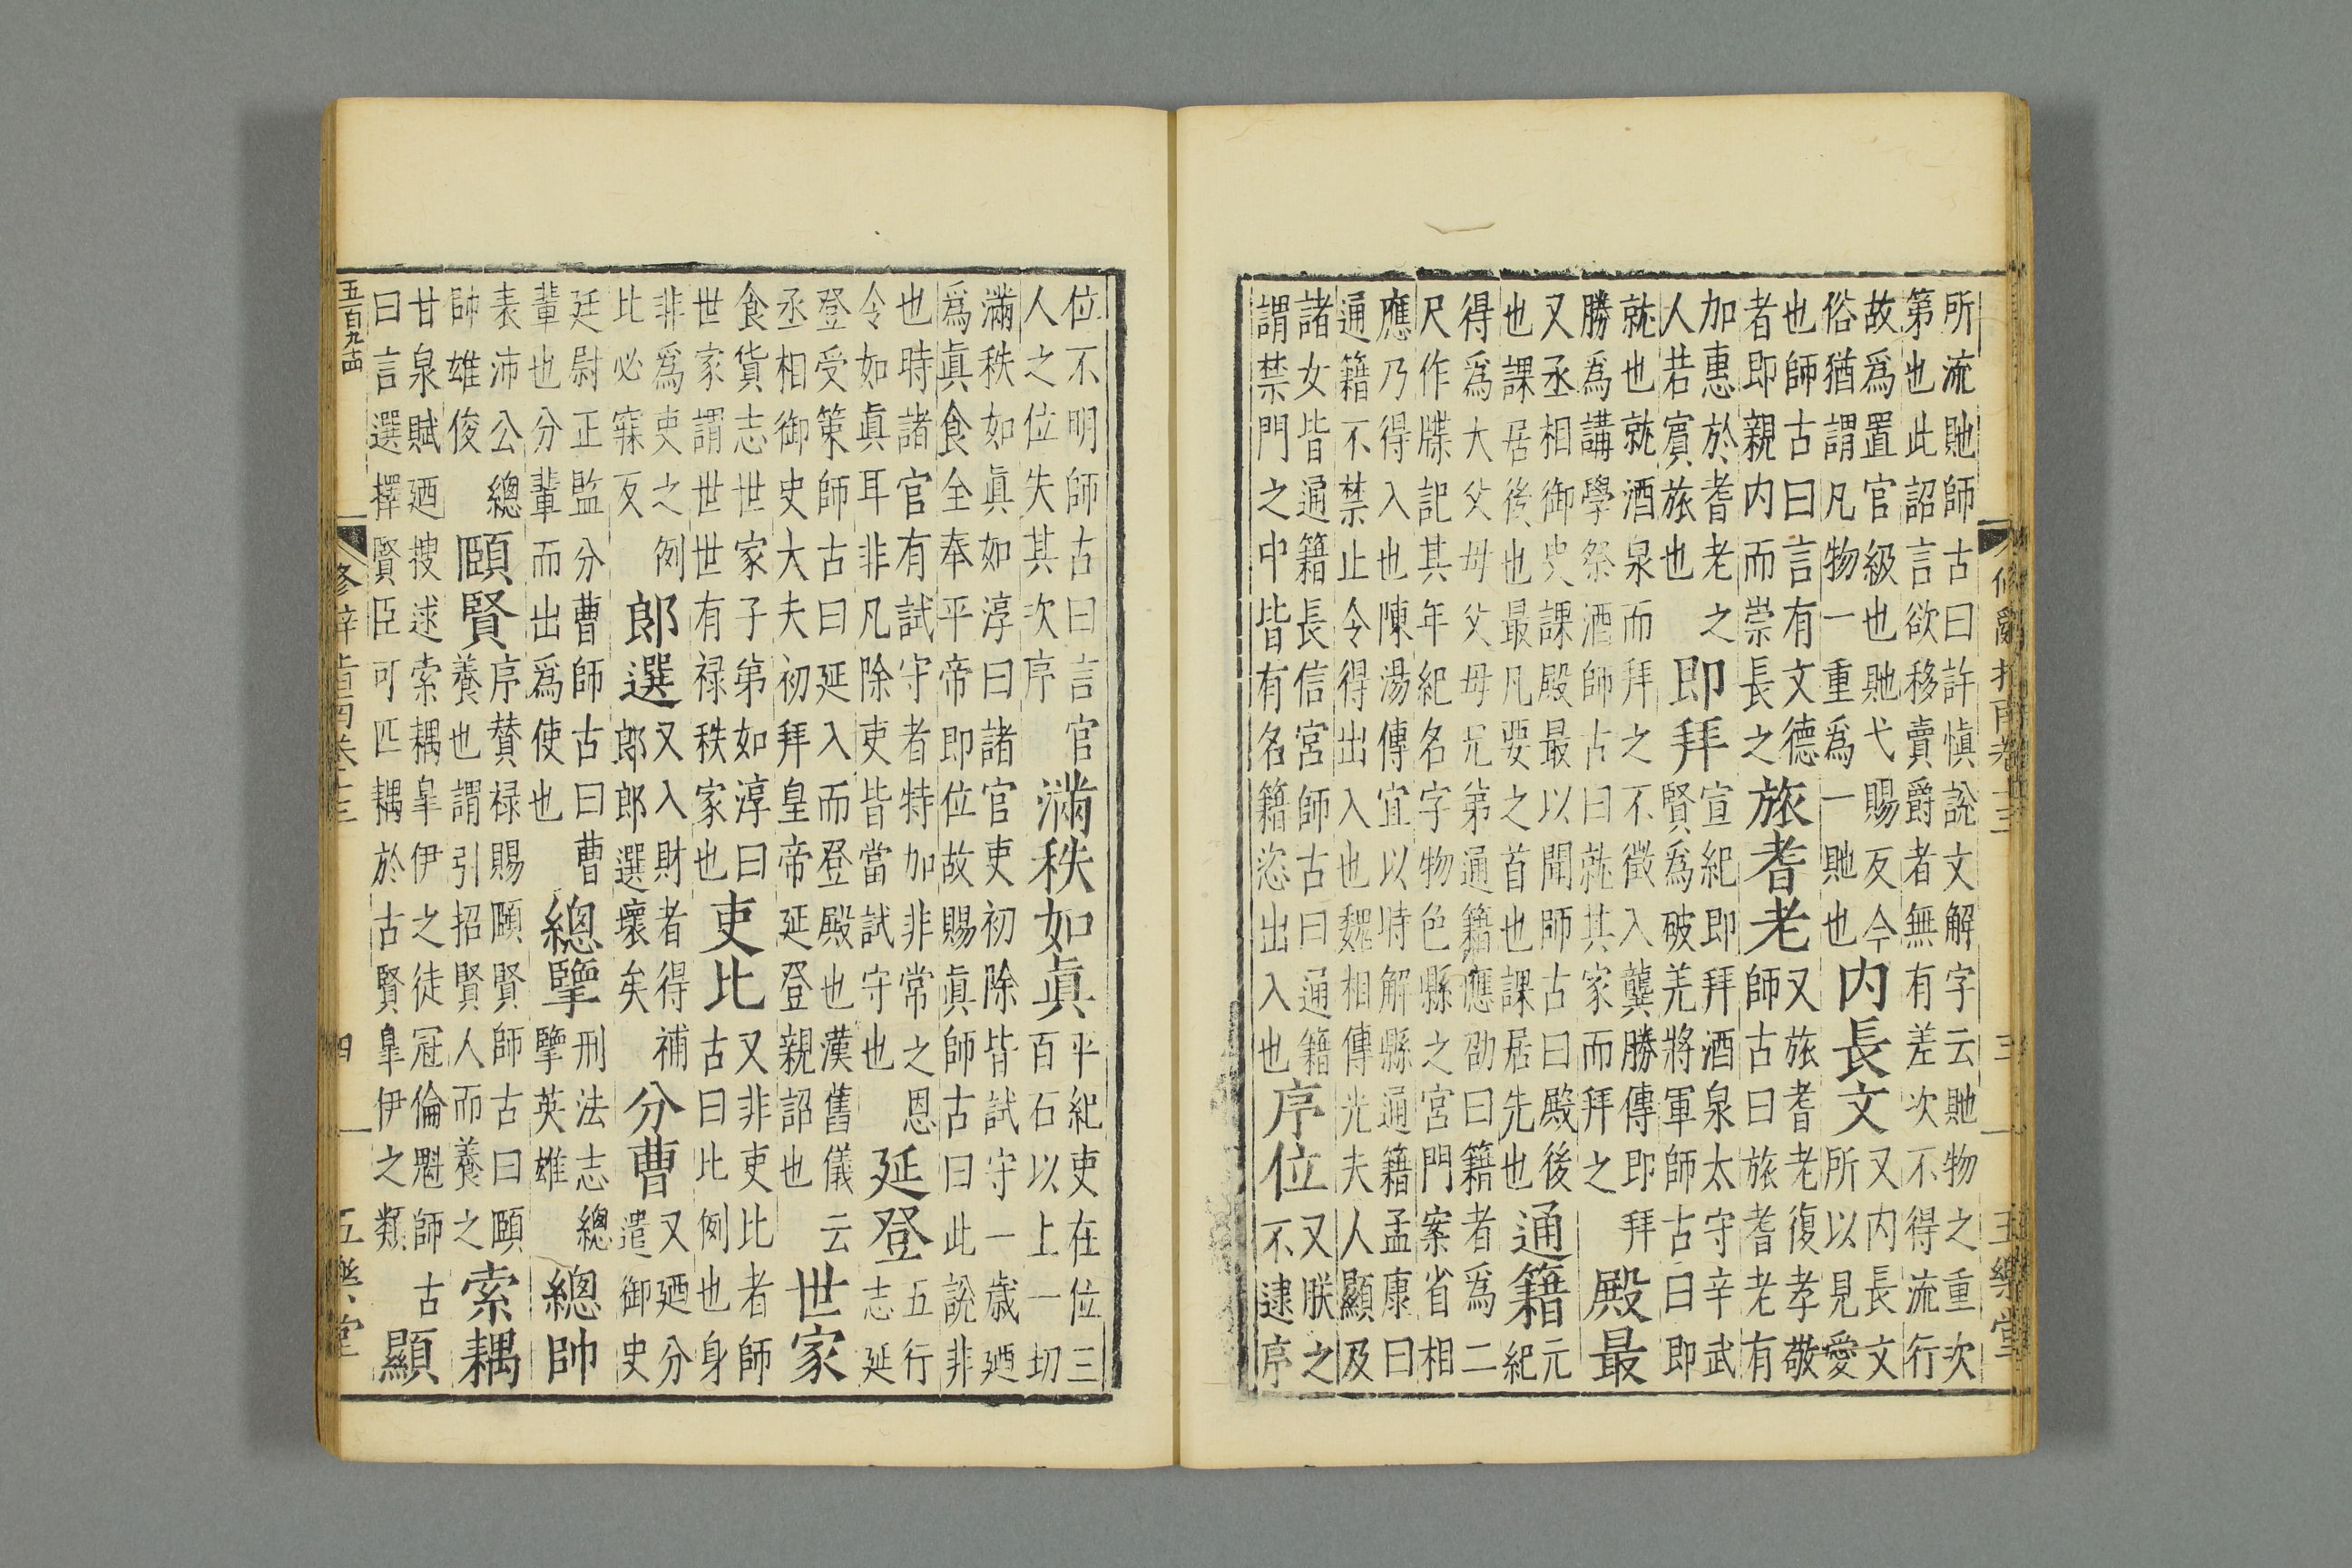 修辭指南卷十三 三 五樂堂
所流貤師古曰許慎說文解字云貤物之重次
第也此詔言欲移賣爵者無有差次不得流行
故爲置官級也貤弋賜反今
俗猶謂凡物一重爲一貤也
内長文
又内長文
所以見愛
也師古曰言有文德
者即親内而崇長之
旅耆老
又旅耆老復孝敬
師古曰旅耆老有
加惠於耆老之
人若賓旅也
即拜
宣紀即拜酒泉太守辛武
賢爲破羌將軍師古曰即
就也就酒泉而拜之不徵入龔勝傳即拜
勝爲講學祭酒師古曰就其家而拜之
殿最
又丞相御史課殿最以聞師古曰殿後
也課居後也最凡要之首也課居先也
通籍
元
紀
得爲大父母父母兄弟通籍應劭曰籍者爲二
尺作牒記其年紀名字物色縣之宮門案省相
應乃得入也陳湯傳宜以時解縣通籍孟康曰
通籍不禁止令得出入也魏相傳光夫人顯及
諸女皆通籍長信宮師古曰通籍
謂禁門之中皆有名籍恣出入也
序位
又朕之
不逮序
位不明師古曰言官
人之位失其次序
滿秩如眞
平紀吏在位三
百石以上一切
滿秩如眞如淳曰諸官吏初除皆試守一歲廼
爲眞食全奉平帝即位故賜眞師古曰此說非
也時諸官有試守者特加非常之恩
令如眞耳非凡除吏皆當試守也
延登
五行
志延
登受策師古曰延入而登殿也漢舊儀云
丞相御史大夫初拜皇帝延登親詔也
世家
食貨志世家子弟如淳曰
世家謂世世有禄秩家也
吏比
又非吏比者師
古曰比例也身
非爲吏之例
比必寐反
郎選
又入財者得補
郎郎選壞矣
分曹
又廼分
遣御史
廷尉正監分曹師古曰曹
輩也分輩而出爲使也
總擥
刑法志總
擥英雄
總帥
表沛公總
帥雄俊
頤賢
序賛禄賜頤賢師古曰頤
養也謂引招賢人而養之
索耦
甘泉賦廼搜逑索耦臯伊之徒冠倫魁師古
曰言選擇賢臣可匹耦於古賢臯伊之類
顯
五百九十四
修辭指南卷十三 四 五樂堂